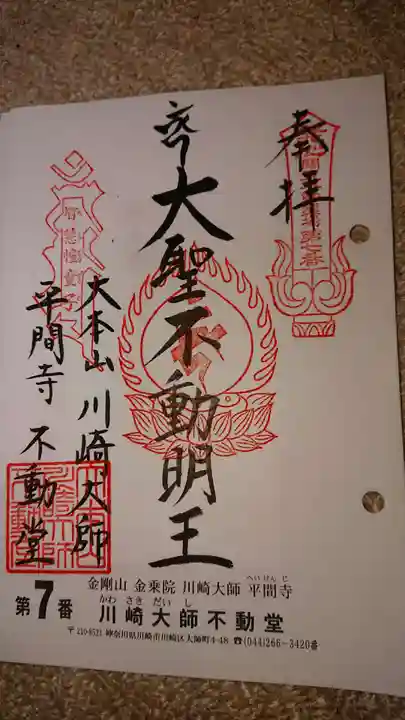 奉拝
大聖不動明王
大本山 川崎大師
平間寺 不動堂
金剛山 金乗院 川崎大師 平間寺
へいけんじ
第7番
かわさきだいし
川崎大師不動堂
〒210-8521 神奈川県川崎市川崎区大師町4-48 ☎(044)266-3420番